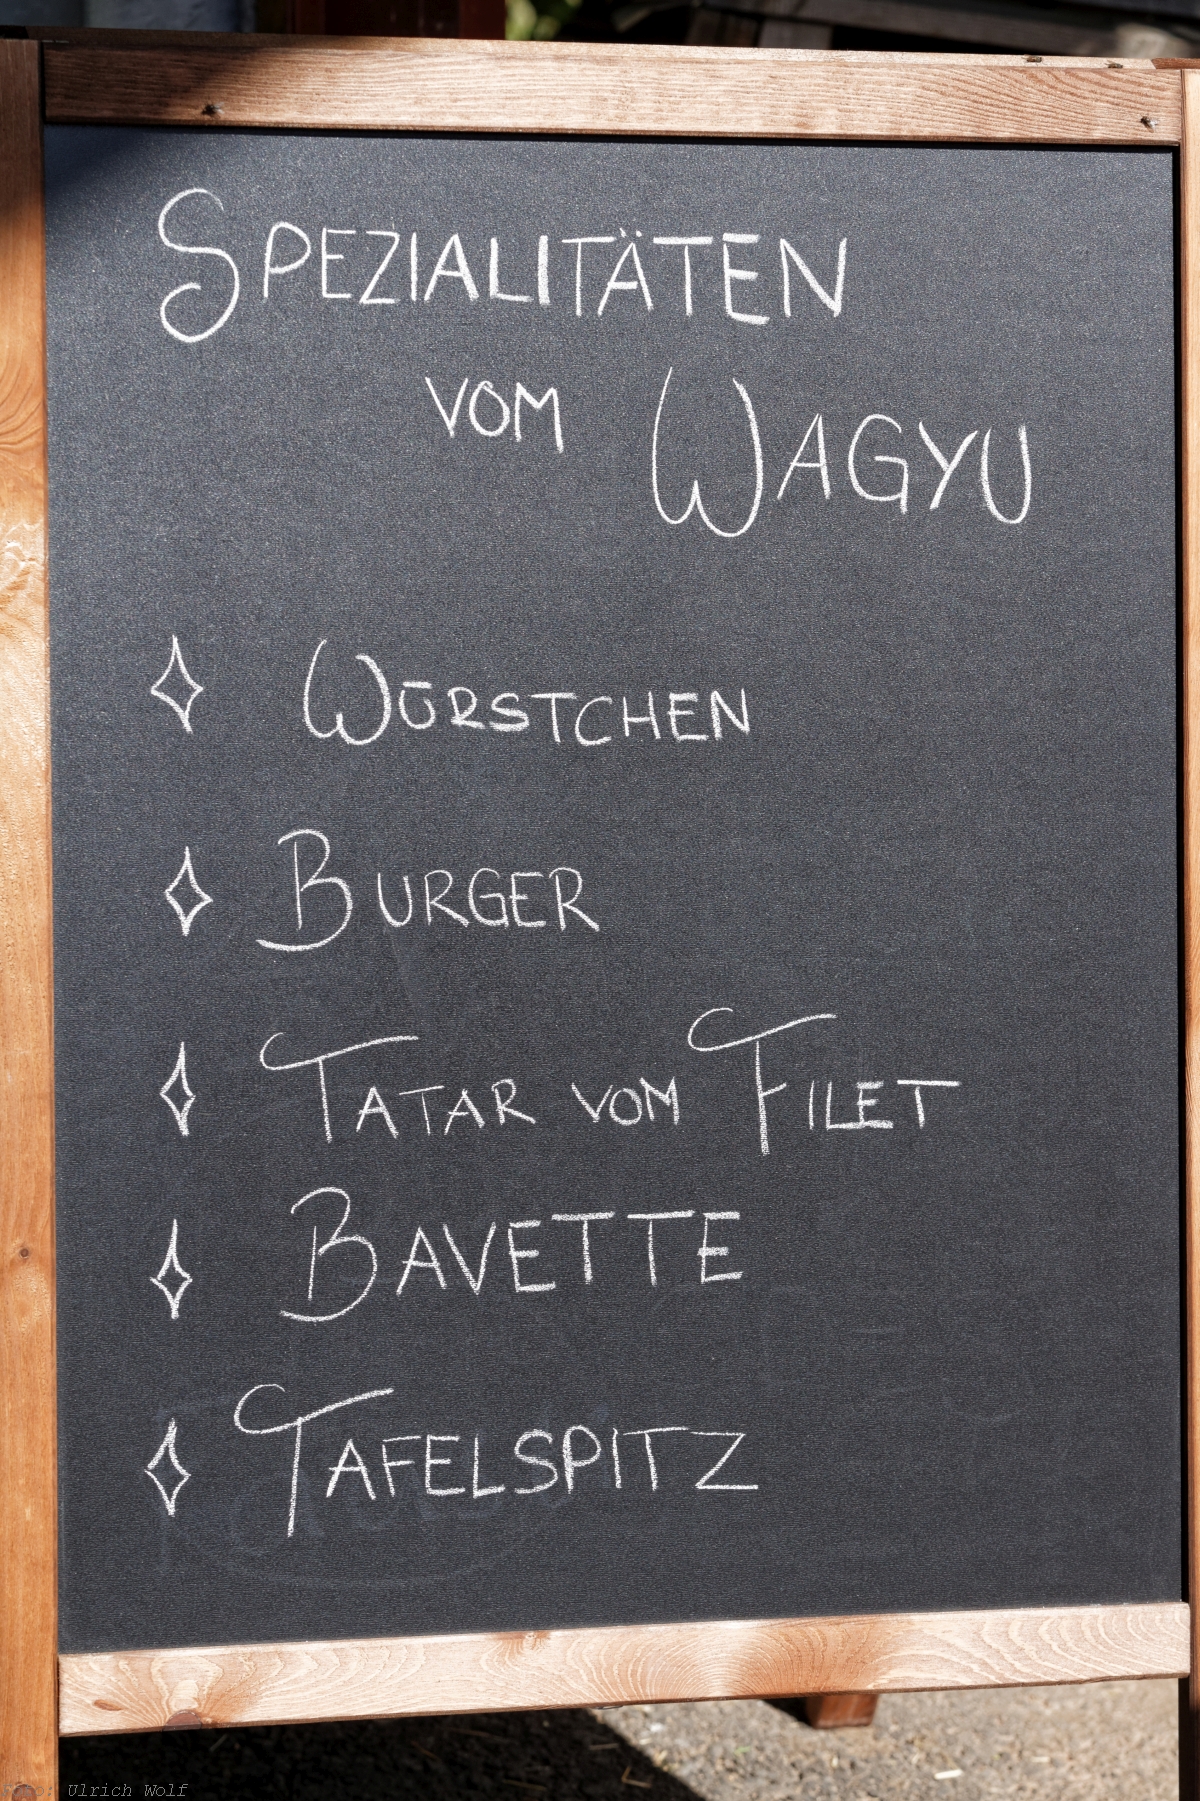 SPEZIALITÄTEN
VOM WAGYU
WÜRSTCHEN
BURGER
TATAR VOM FILET
BAVETTE
TAFELSPITZ
Ulrich Wolf